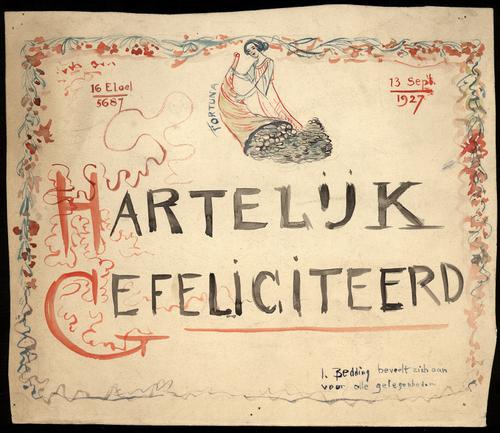 16 Eloel
5687
13 Sept.
1927
FORTUNA
HARTELIJK
GEFELICITEERD
I. Bedding beveelt zich aan
voor alle gelegenheden